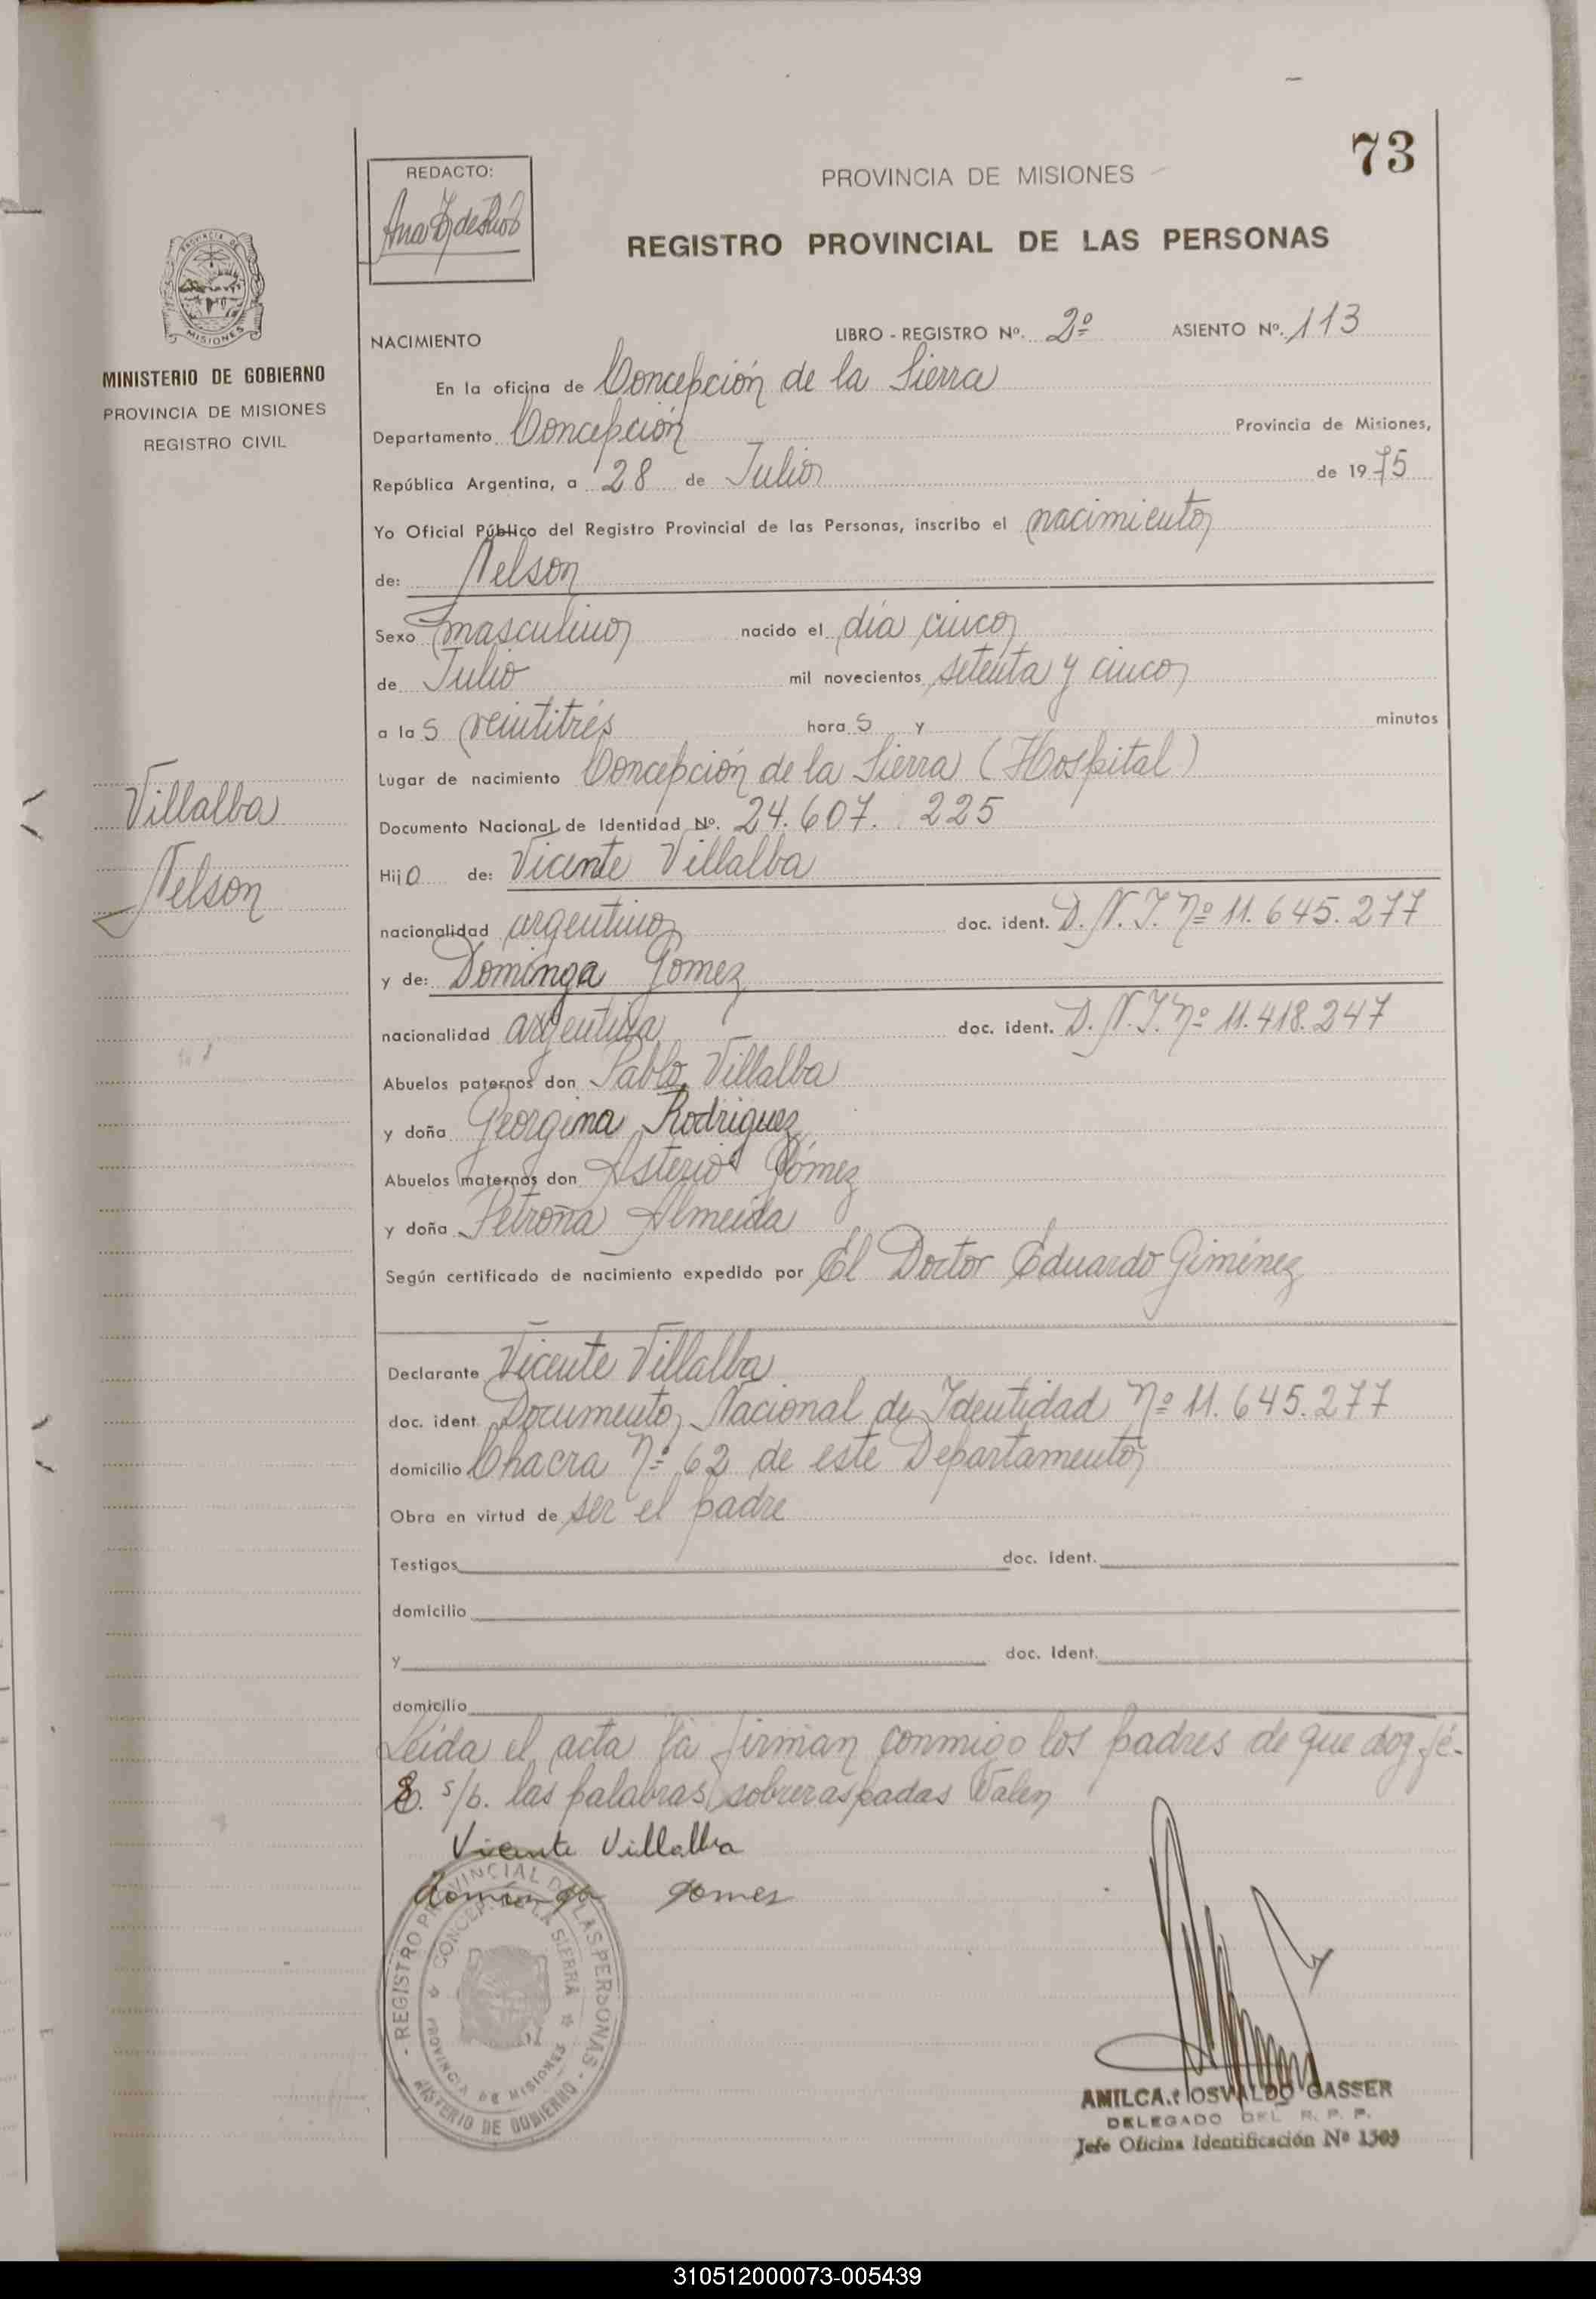 73
REDACTO:
PROVINCIA DE MISIONES
REGISTRO PROVINCIAL DE LAS PERSONAS
MINISTERIO DE GOBIERNO
PROVINCIA DE MISIONES
REGISTRO CIVIL
NACIMIENTO LIBRO - REGISTRO Nº. 2º ASIENTO Nº. 113
En la oficina de Concepción de la Sierra
Departamento Concepción Provincia de Misiones,
República Argentina, a 28 de Julio de 1975
Yo Oficial Público del Registro Provincial de las Personas, inscribo el nacimiento
de: Nelson
Sexo masculino nacido el día cinco
de Julio mil novecientos setenta y cinco
a las veintitrés horas y minutos
Lugar de nacimiento Concepción de la Sierra (Hospital)
Documento Nacional de Identidad Nº. 24.607.225
Hijo de: Vicente Villalba
nacionalidad argentino doc. ident. D.N.I. Nº 11.645.277
y de: Dominga Gomez
nacionalidad argentina doc. ident. D.N.I. Nº 11.418.247
Abuelos paternos don Pablo Villalba
y doña Georgina Rodriguez
Abuelos maternos don Asterio Gómez
y doña Petrona Almeida
Según certificado de nacimiento expedido por El Doctor Eduardo Giménez
Declarante Vicente Villalba
doc. ident. Documento Nacional de Identidad Nº 11.645.277
domicilio Chacra Nº 62 de este Departamento
Obra en virtud de ser el padre
Testigos doc. ident.
domicilio
y doc. ident.
domicilio
Leída el acta la firman conmigo los padres de que doy fé.
s/b. las palabras sobreraspadas Valen
Vicente Villalba
Dominga Gomes
Villalba
Nelson
- REGISTRO PROVINCIAL DE LAS PERSONAS -
MINISTERIO DE GOBIERNO
CONCEP. DE LA SIERRA
PROVINCIA DE MISIONES
AMILCAR OSVALDO GASSER
DELEGADO DEL R. P. P.
Jefe Oficina Identificación Nº 1505
310512000073-005439